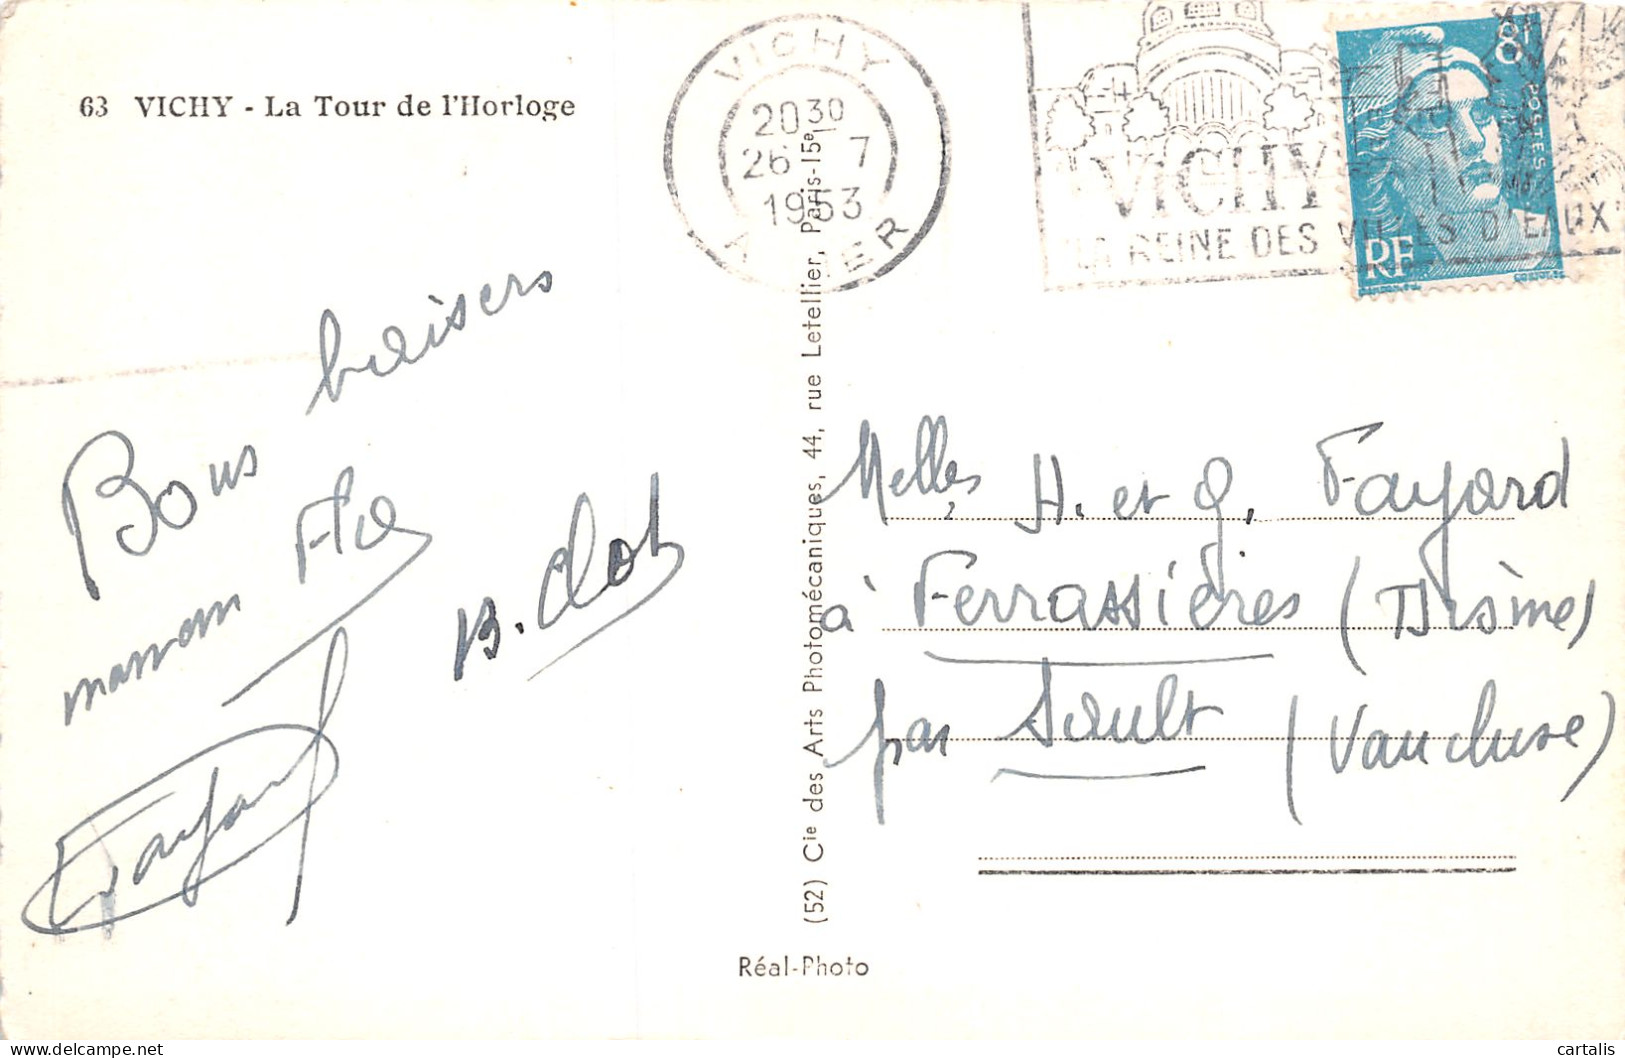 63 VICHY - La Tour de l'Horloge
VICHY
20 30
26 7
1953
VICHY
LA REINE DES VILLES D'EAUX
8F
POSTES
RF
Bons baisers
B. Clot
Fayard
Melles H. et G. Fayard
à Ferrassières (Drôme)
par Sault (Vaucluse)
(52) Cie des Arts Photomécaniques, 44, rue Letellier, Paris-15e
Réal-Photo
cartalis